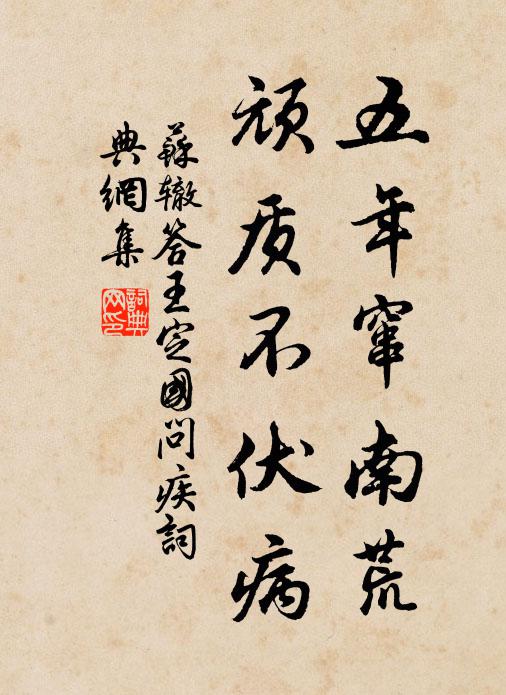 五年窜南荒
顽质不伏病
蘇辙答王定國问疾詞
典網集
詞典
网印